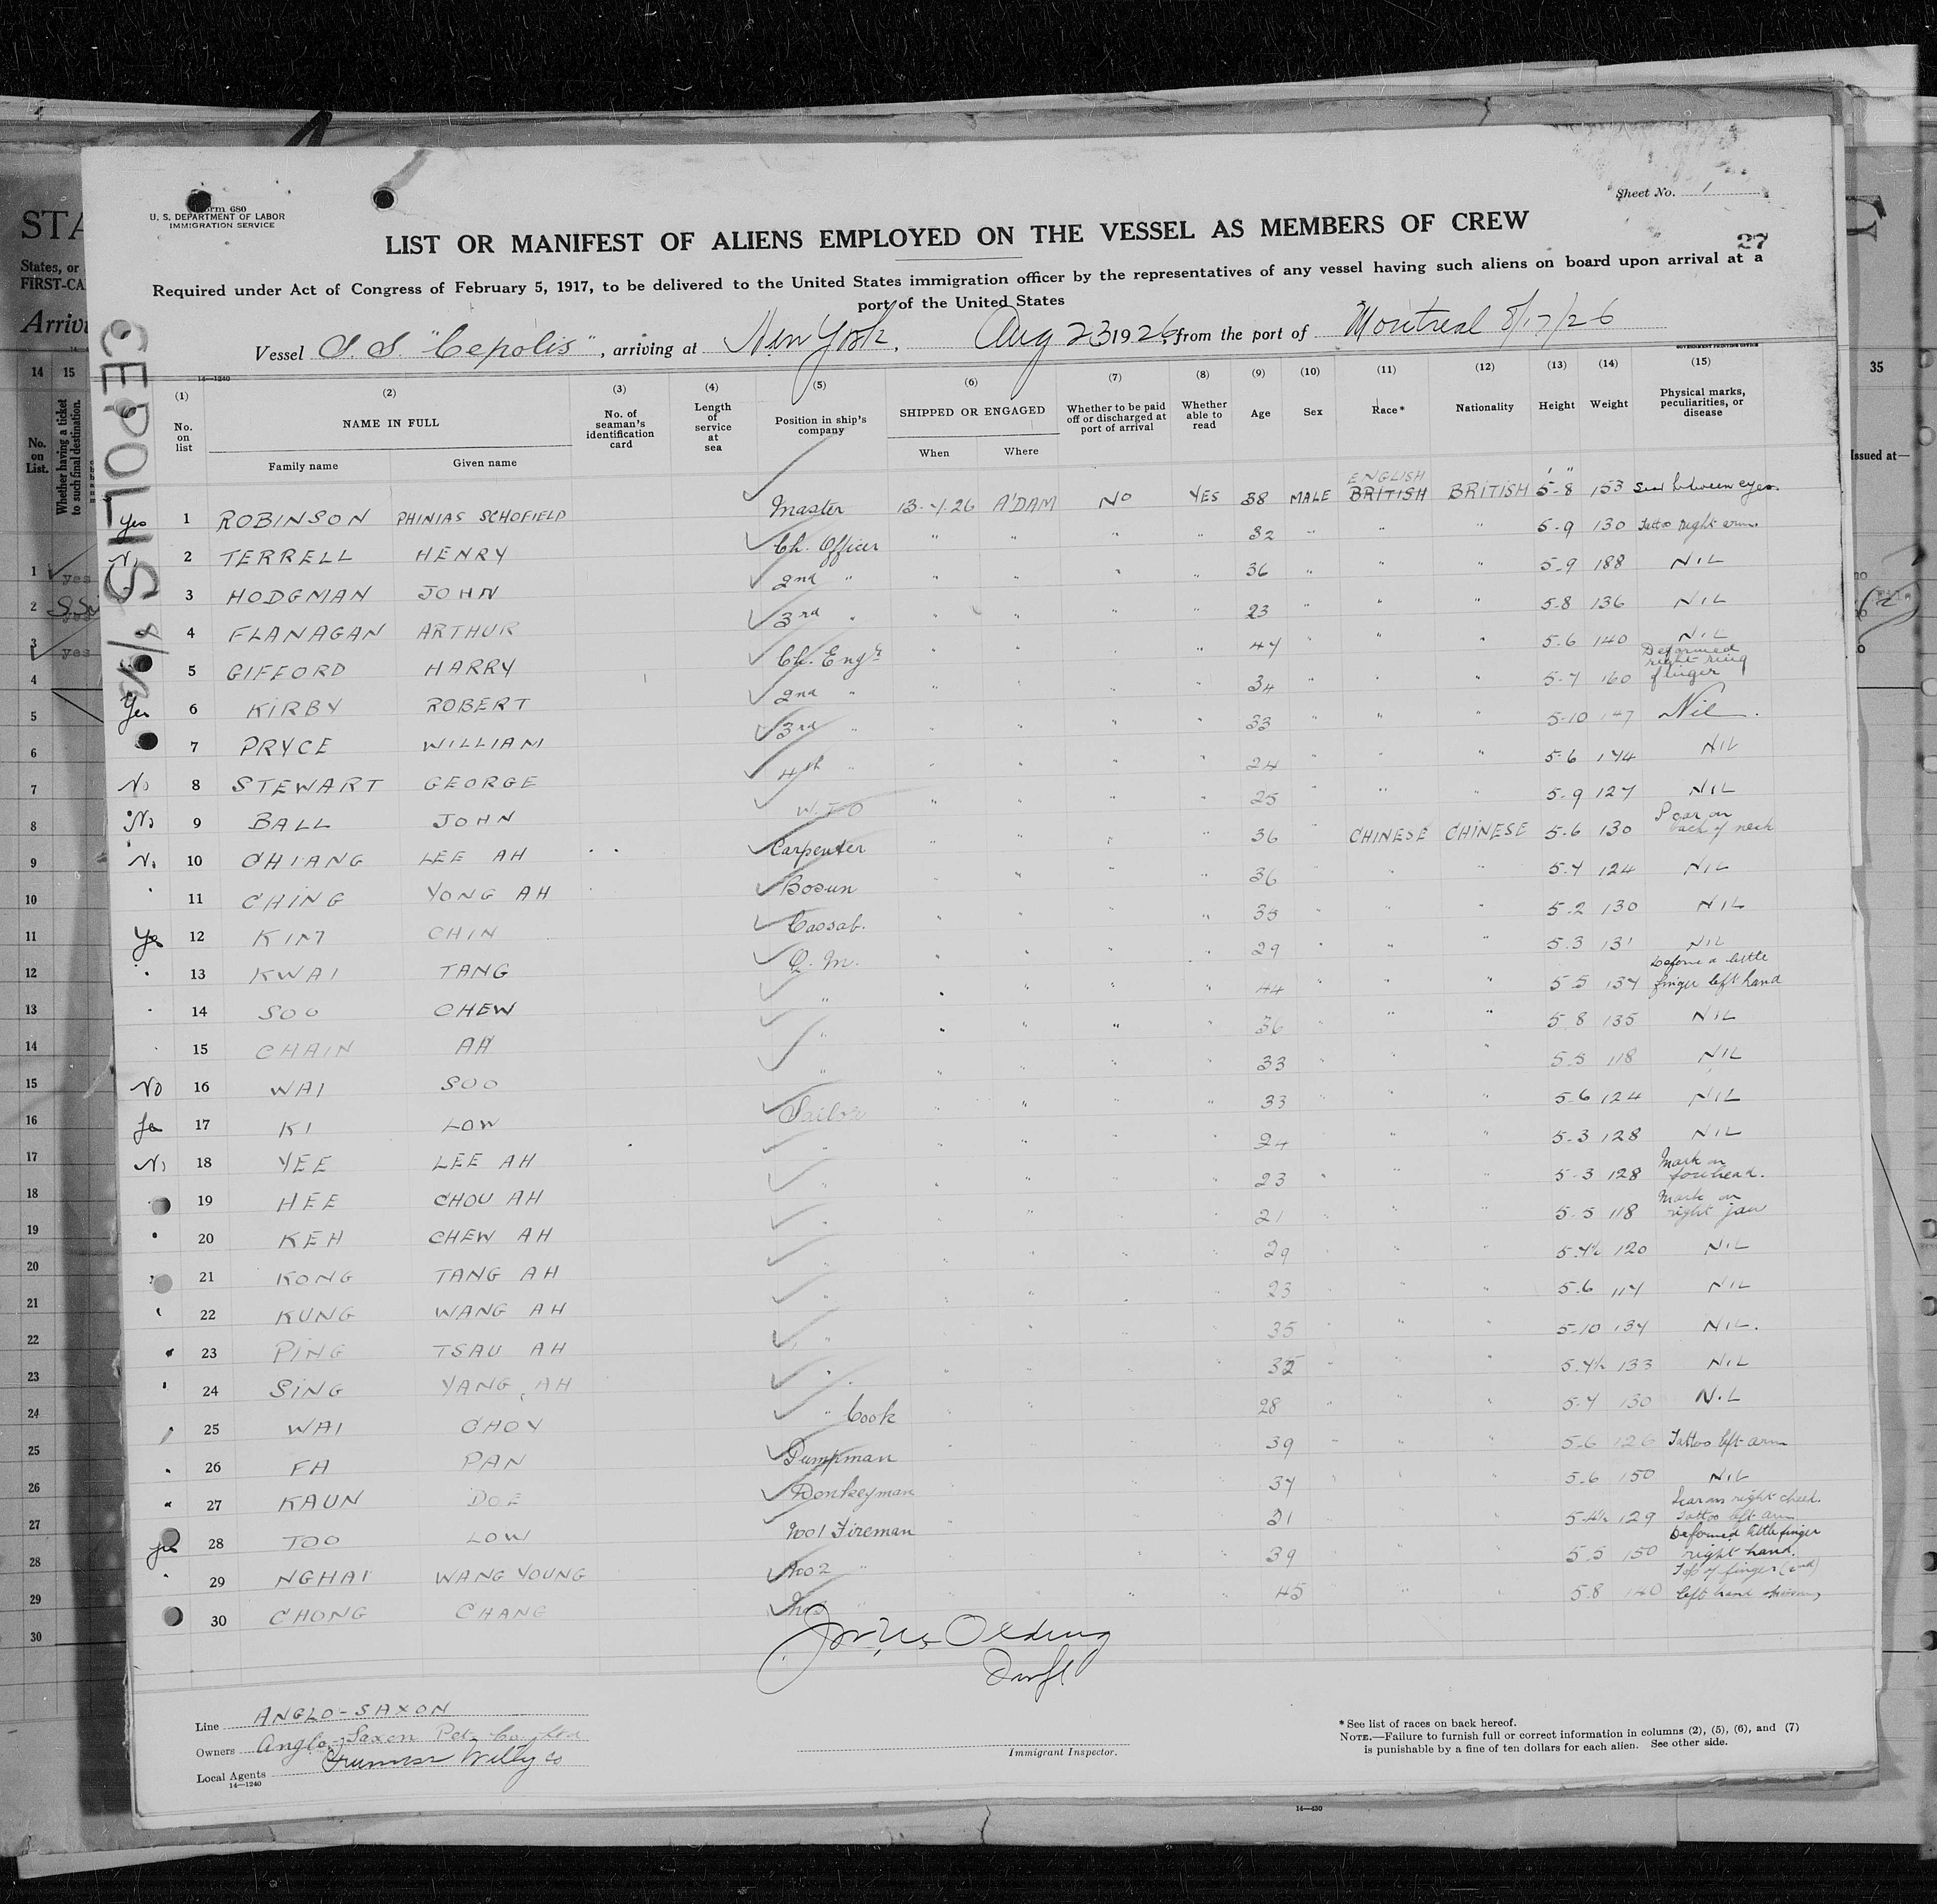 Sheet No. 1
Form 680
U. S. DEPARTMENT OF LABOR
IMMIGRATION SERVICE
LIST OR MANIFEST OF ALIENS EMPLOYED ON THE VESSEL AS MEMBERS OF CREW
27
Required under Act of Congress of February 5, 1917, to be delivered to the United States immigration officer by the representatives of any vessel having such aliens on board upon arrival at a
port of the United States
Vessel S. S "Cepolis", arriving at New York, Aug 23 1926, from the port of Montreal 8/17/26
CEPOLIS
14—1240
GOVERNMENT PRINTING OFFICE
(1) (2) (3) (4) (5) (6) (7) (8) (9) (10) (11) (12) (13) (14) (15)
No. on list NAME IN FULL No. of seaman's identification card Length of service at sea Position in ship's company SHIPPED OR ENGAGED Whether to be paid off or discharged at port of arrival Whether able to read Age Sex Race* Nationality Height Weight Physical marks, peculiarities, or disease
Family name Given name When Where
ENGLISH
Yes 1 ROBINSON PHINIAS SCHOFIELD Master 13-1.26 A'DAM NO YES 38 MALE BRITISH BRITISH 5-8 153 Scar between eyes.
2 TERRELL HENRY Ch. Officer " " " " 32 " " " 5-9 130 Tattoo right arm.
3 HODGMAN JOHN 2nd " " " " " 36 " " " 5-9 188 NIL
4 FLANAGAN ARTHUR 3rd " " " " " 23 " " " 5-8 136 NIL
5 GIFFORD HARRY Ch. Engr " " " " 44 " " " 5-6 140 NIL
Yes 6 KIRBY ROBERT 2nd " " " " " 34 " " " 5-7 160 Deformed right ring finger
7 PRYCE WILLIAM 3rd " " " " " 33 " " " 5-10 147 Nil.
No 8 STEWART GEORGE 4th " " " " " 24 " " " 5-6 144 NIL
No 9 BALL JOHN W.T.O " " " " 25 " " " 5-9 127 NIL
No 10 CHIANG LEE AH Carpenter " " " " 36 CHINESE CHINESE 5-6 130 Scar on back of neck
" 11 CHING YONG AH Bosun " " " " 36 " " " 5-4 124 NIL
Yes 12 KIM CHIN Cassab. " " " " 35 " " " 5-2 130 NIL
" 13 KWAI TANG Q. M. " " " " 29 " " " 5-3 131 NIL
" 14 SOO CHEW " " " " " 44 " " " 5-5 134 Deformed little finger left hand
" 15 CHAIN AH " " " " " 36 " " " 5-8 135 NIL
No 16 WAI SOO " " " " " 33 " " " 5-5 118 NIL
17 KI LOW Sailor " " " " 33 " " " 5-6 124 NIL
No 18 YEE LEE AH " " " " " 24 " " " 5-3 128 NIL
19 HEE CHOU AH " " " " " 23 " " " 5-3 128 Mark on forehead.
" 20 KEH CHEW AH " " " " " 21 " " " 5-5 118 Mark on right jaw
" 21 KONG TANG AH " " " " " 29 " " " 5-4½ 120 NIL
" 22 KUNG WANG AH " " " " " 23 " " " 5-6 114 NIL
" 23 PING TSAU AH " " " " " 35 " " " 5-10 134 NIL.
" 24 SING YANG AH " " " " " 32 " " " 5-4½ 133 NIL
" 25 WAI CHOY " Cook " " " " 28 " " " 5-4 130 NIL
" 26 FH PAN Pumpman " " " " 39 " " " 5-6 126 Tattoo left arm
" 27 KAUN DOE Donkeyman " " " " 34 " " " 5-6 150 NIL
yes 28 TOO LOW No1 Fireman " " " " 31 " " " 5-4½ 129 Scar on right cheek. Tattoo left arm
" 29 NGHAI WANG YOUNG No2 " " " " " 39 " " " 5-5 150 Deformed little finger right hand.
30 CHONG CHANG No3 " " " " " 45 " " " 5-8 140 Top of finger (2nd) left hand missing
Line ANGLO-SAXON
Owners Anglo-Saxon Pet. Co Ltd
Local Agents
14—1240
Immigrant Inspector.
* See list of races on back hereof.
NOTE.—Failure to furnish full or correct information in columns (2), (5), (6), and (7)
is punishable by a fine of ten dollars for each alien. See other side.
14—430
States, or
Arriv
14 15
No. on List.
Whether having a ticket to such final destination.
35
Issued at—